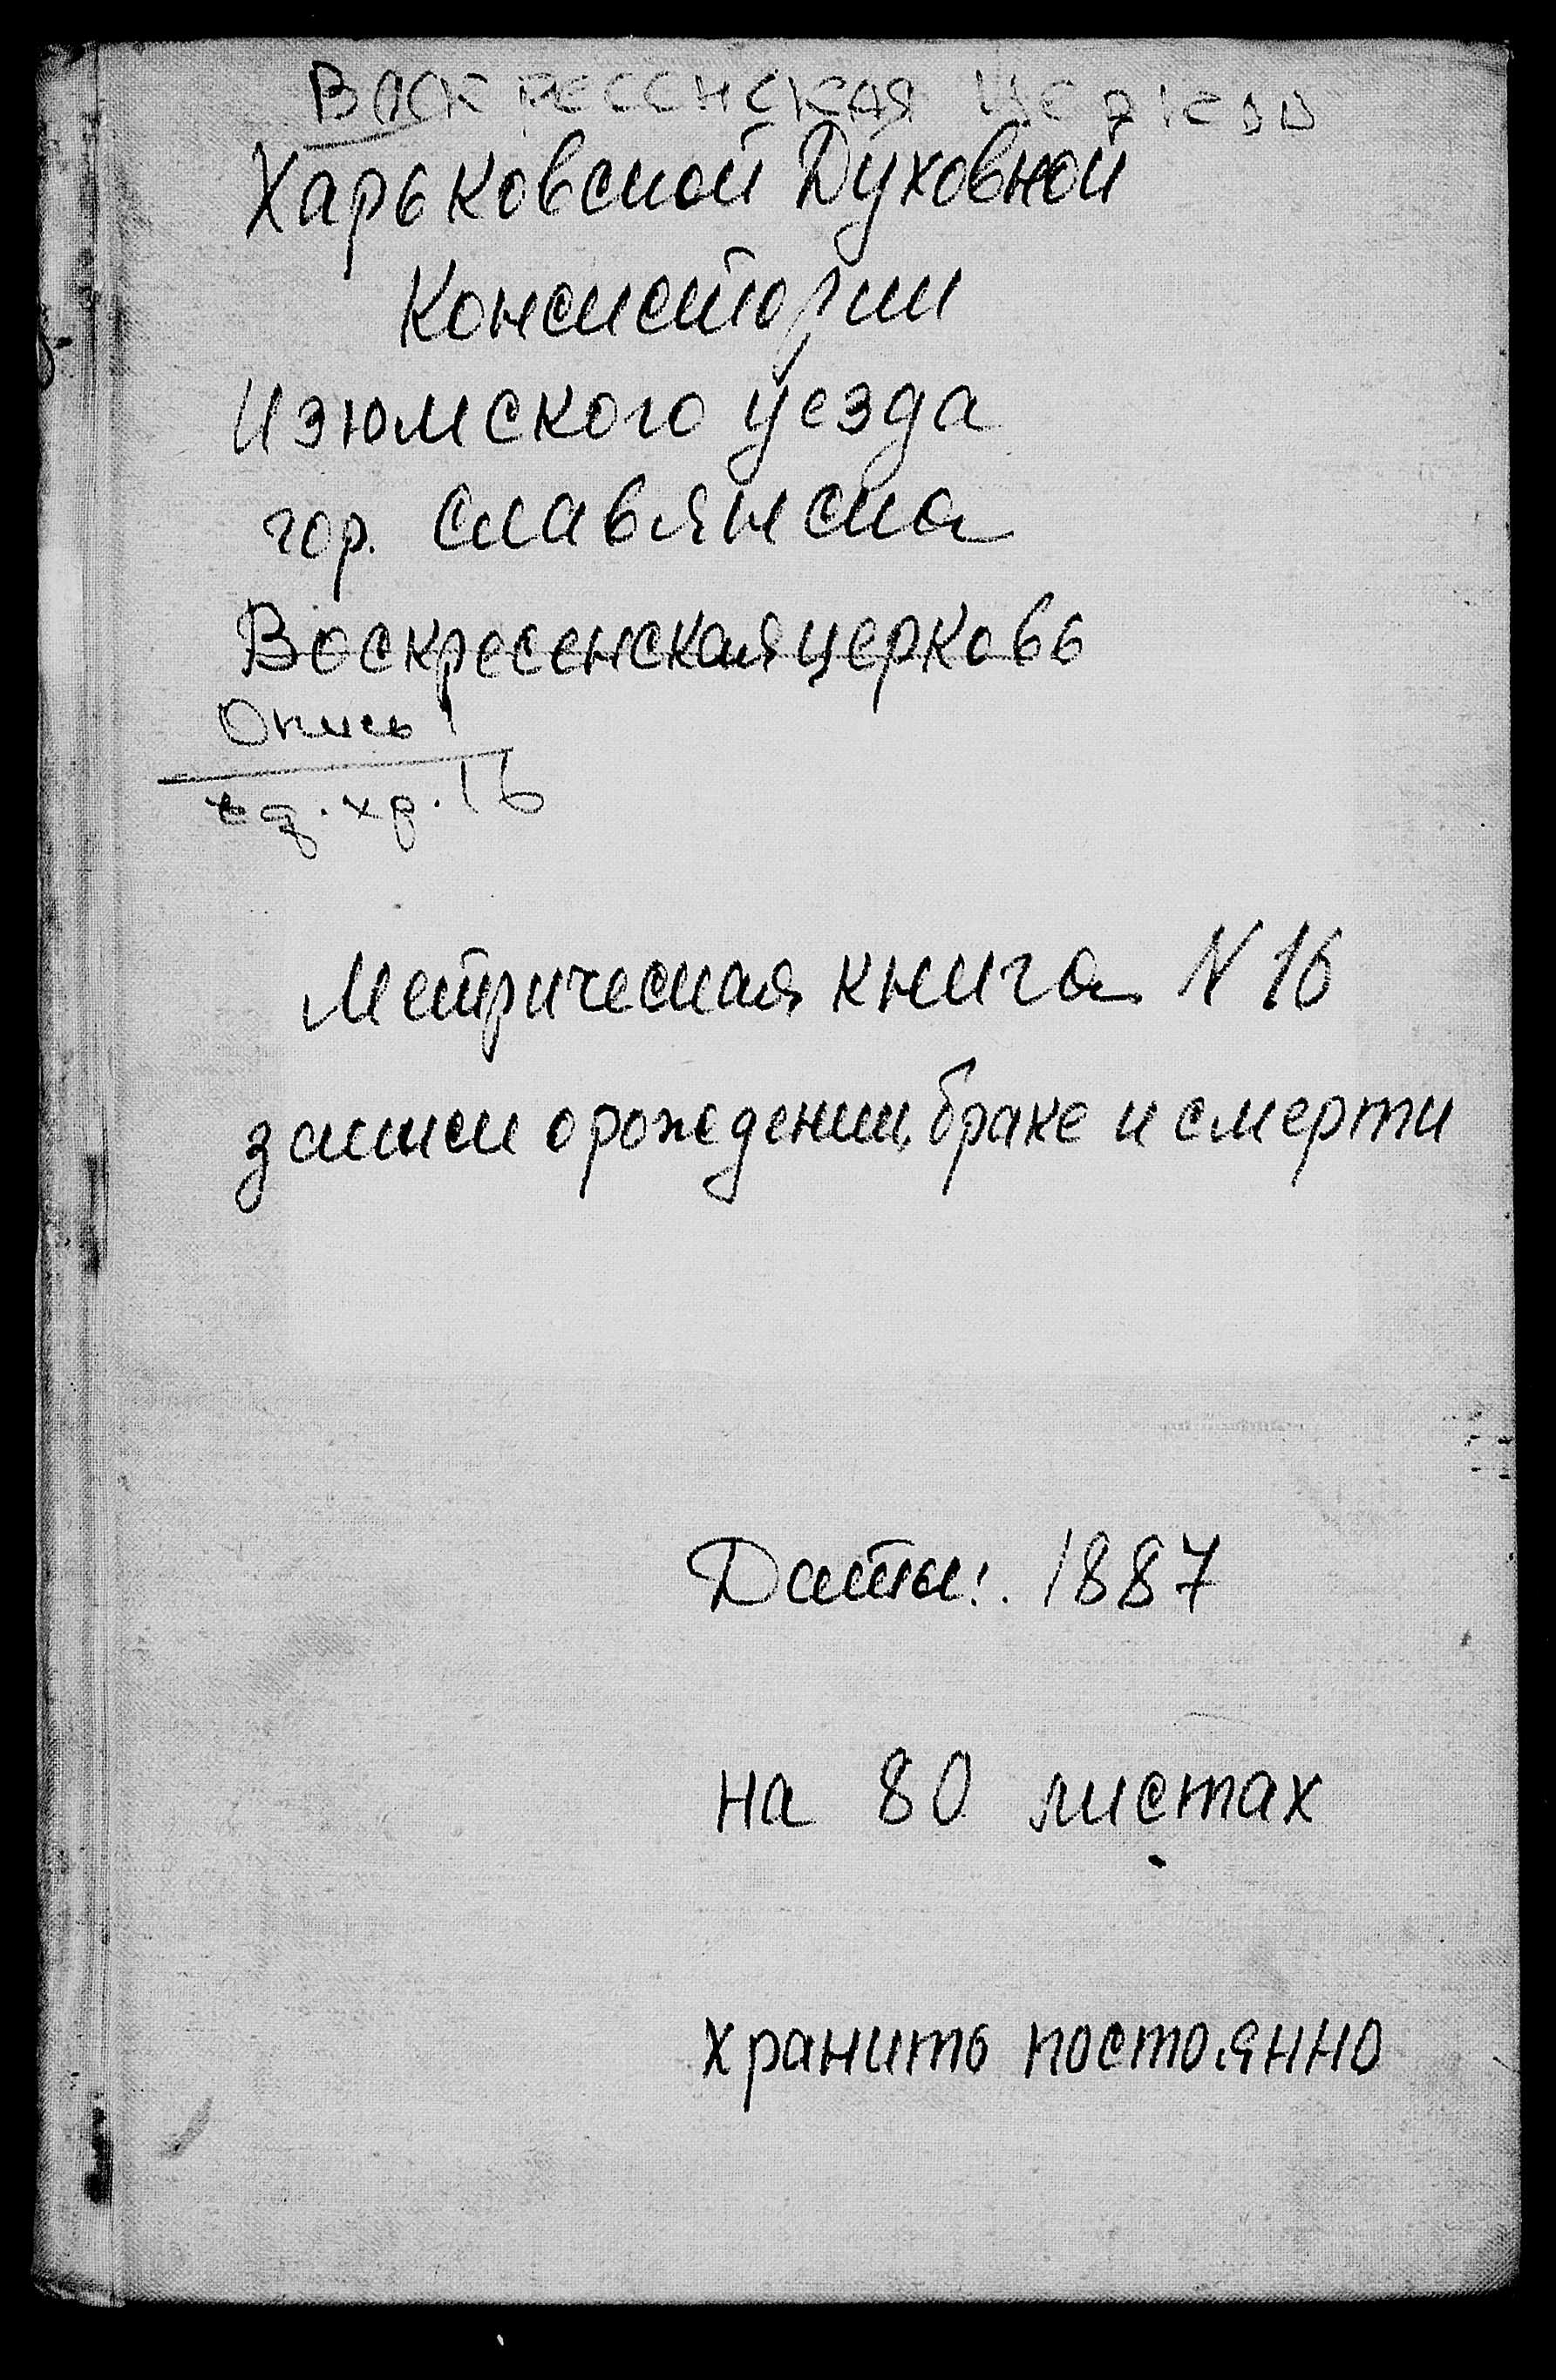 Воскресенская церковь
Харьковской Духовной
Консистории
Изюмского уезда
гор. Славянска
Воскресенская церковь
Опись 1
ед. хр. 16
Метрическая книга N 16
записи о рождении, браке и смерти
Даты: 1887
на 80 листах
хранить постоянно